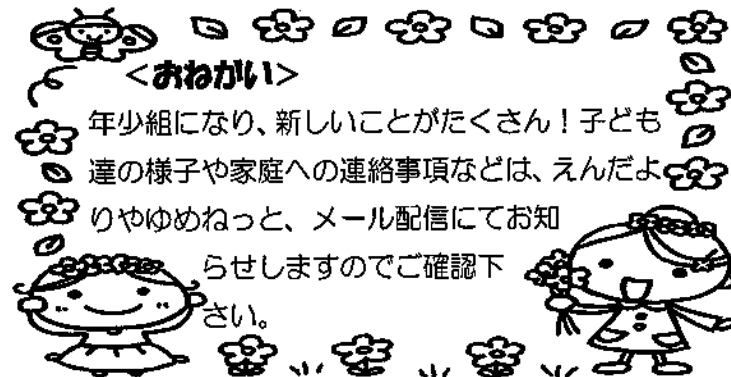 ＜おねがい＞
年少組になり、新しいことがたくさん！子ども
達の様子や家庭への連絡事項などは、えんだよ
りやゆめねっと、メール配信にてお知
らせしますのでご確認下
さい。